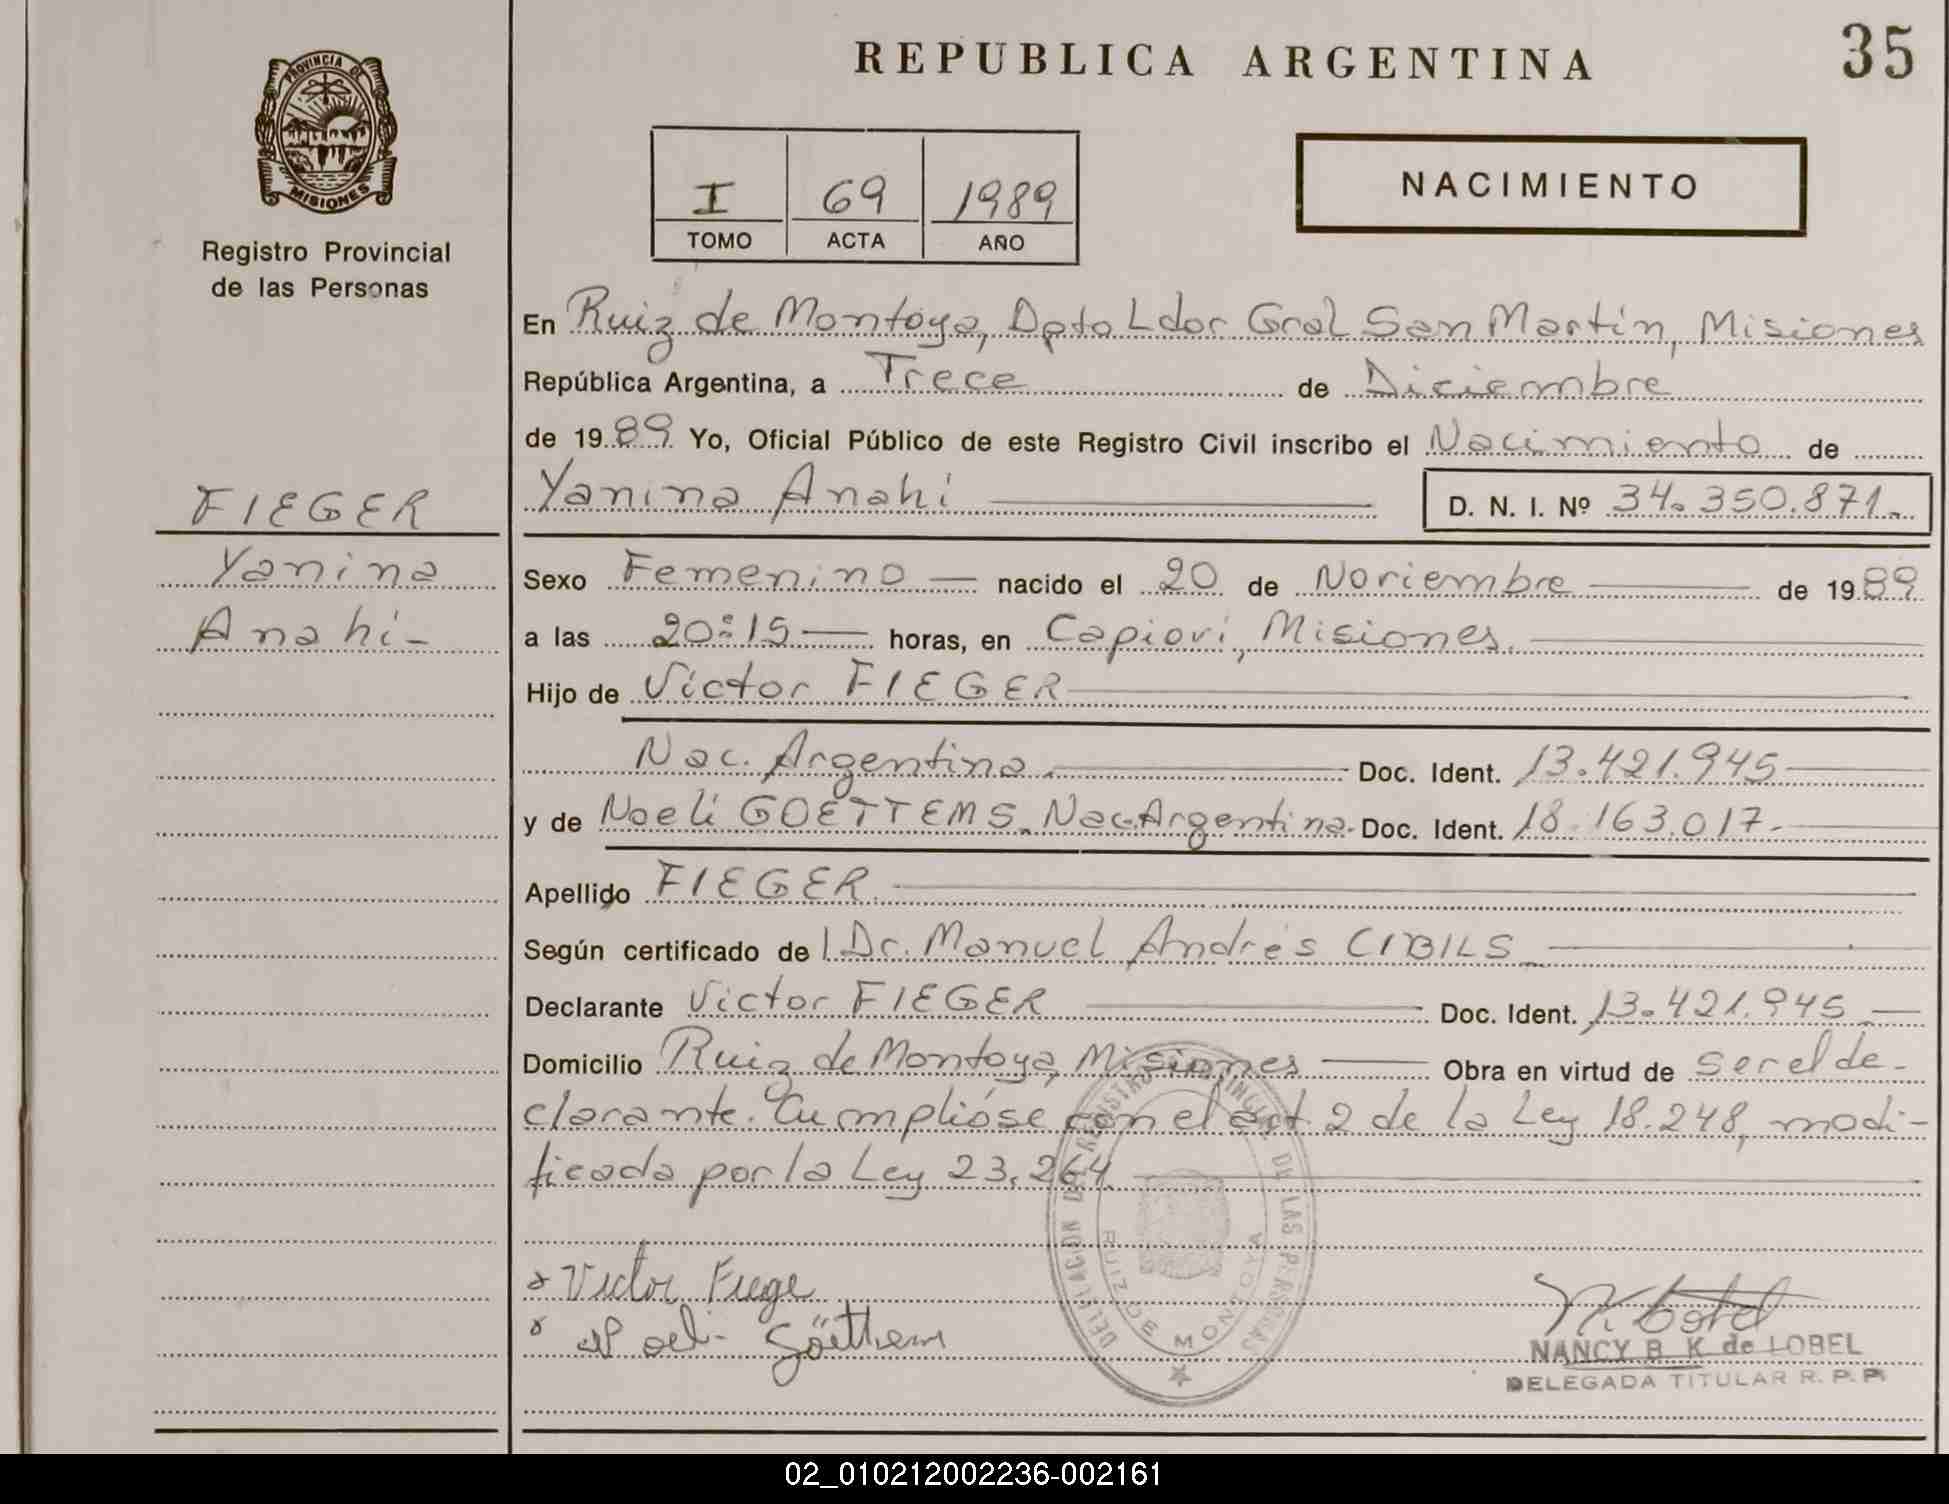 REPUBLICA ARGENTINA
35
PROVINCIA DE
MISIONES
Registro Provincial
de las Personas
I 69 1989
TOMO ACTA AÑO
NACIMIENTO
En Ruiz de Montoya, Dpto Ldor Gral San Martín, Misiones
República Argentina, a Trece de Diciembre
de 1989 Yo, Oficial Público de este Registro Civil inscribo el Nacimiento de
Yanina Anahí D. N. I. Nº 34.350.871.-
FIEGER
Yanina
Anahí-
Sexo Femenino — nacido el 20 de Noviembre — de 1989
a las 20:15 — horas, en Capioví, Misiones.
Hijo de Víctor FIEGER
Nac. Argentina.— Doc. Ident. 13.421.945
y de Noelí GOETTEMS. Nac. Argentina. Doc. Ident. 18.163.017.-
Apellido FIEGER.
Según certificado de Dr. Manuel Andrés CIBILS
Declarante Víctor FIEGER Doc. Ident. 13.421.945
Domicilio Ruiz de Montoya, Misiones — Obra en virtud de ser el de-
clarante. Cumplióse con el art. 2 de la Ley 18.248, modi-
ficada por la Ley 23.264.
Victor Fiege
Noeli Göttem
DELEGACION DEL REGISTRO PROVINCIAL DE LAS PERSONAS
RUIZ DE MONTOYA
NANCY B. K. de LOBEL
DELEGADA TITULAR R. P. P.
02_010212002236-002161